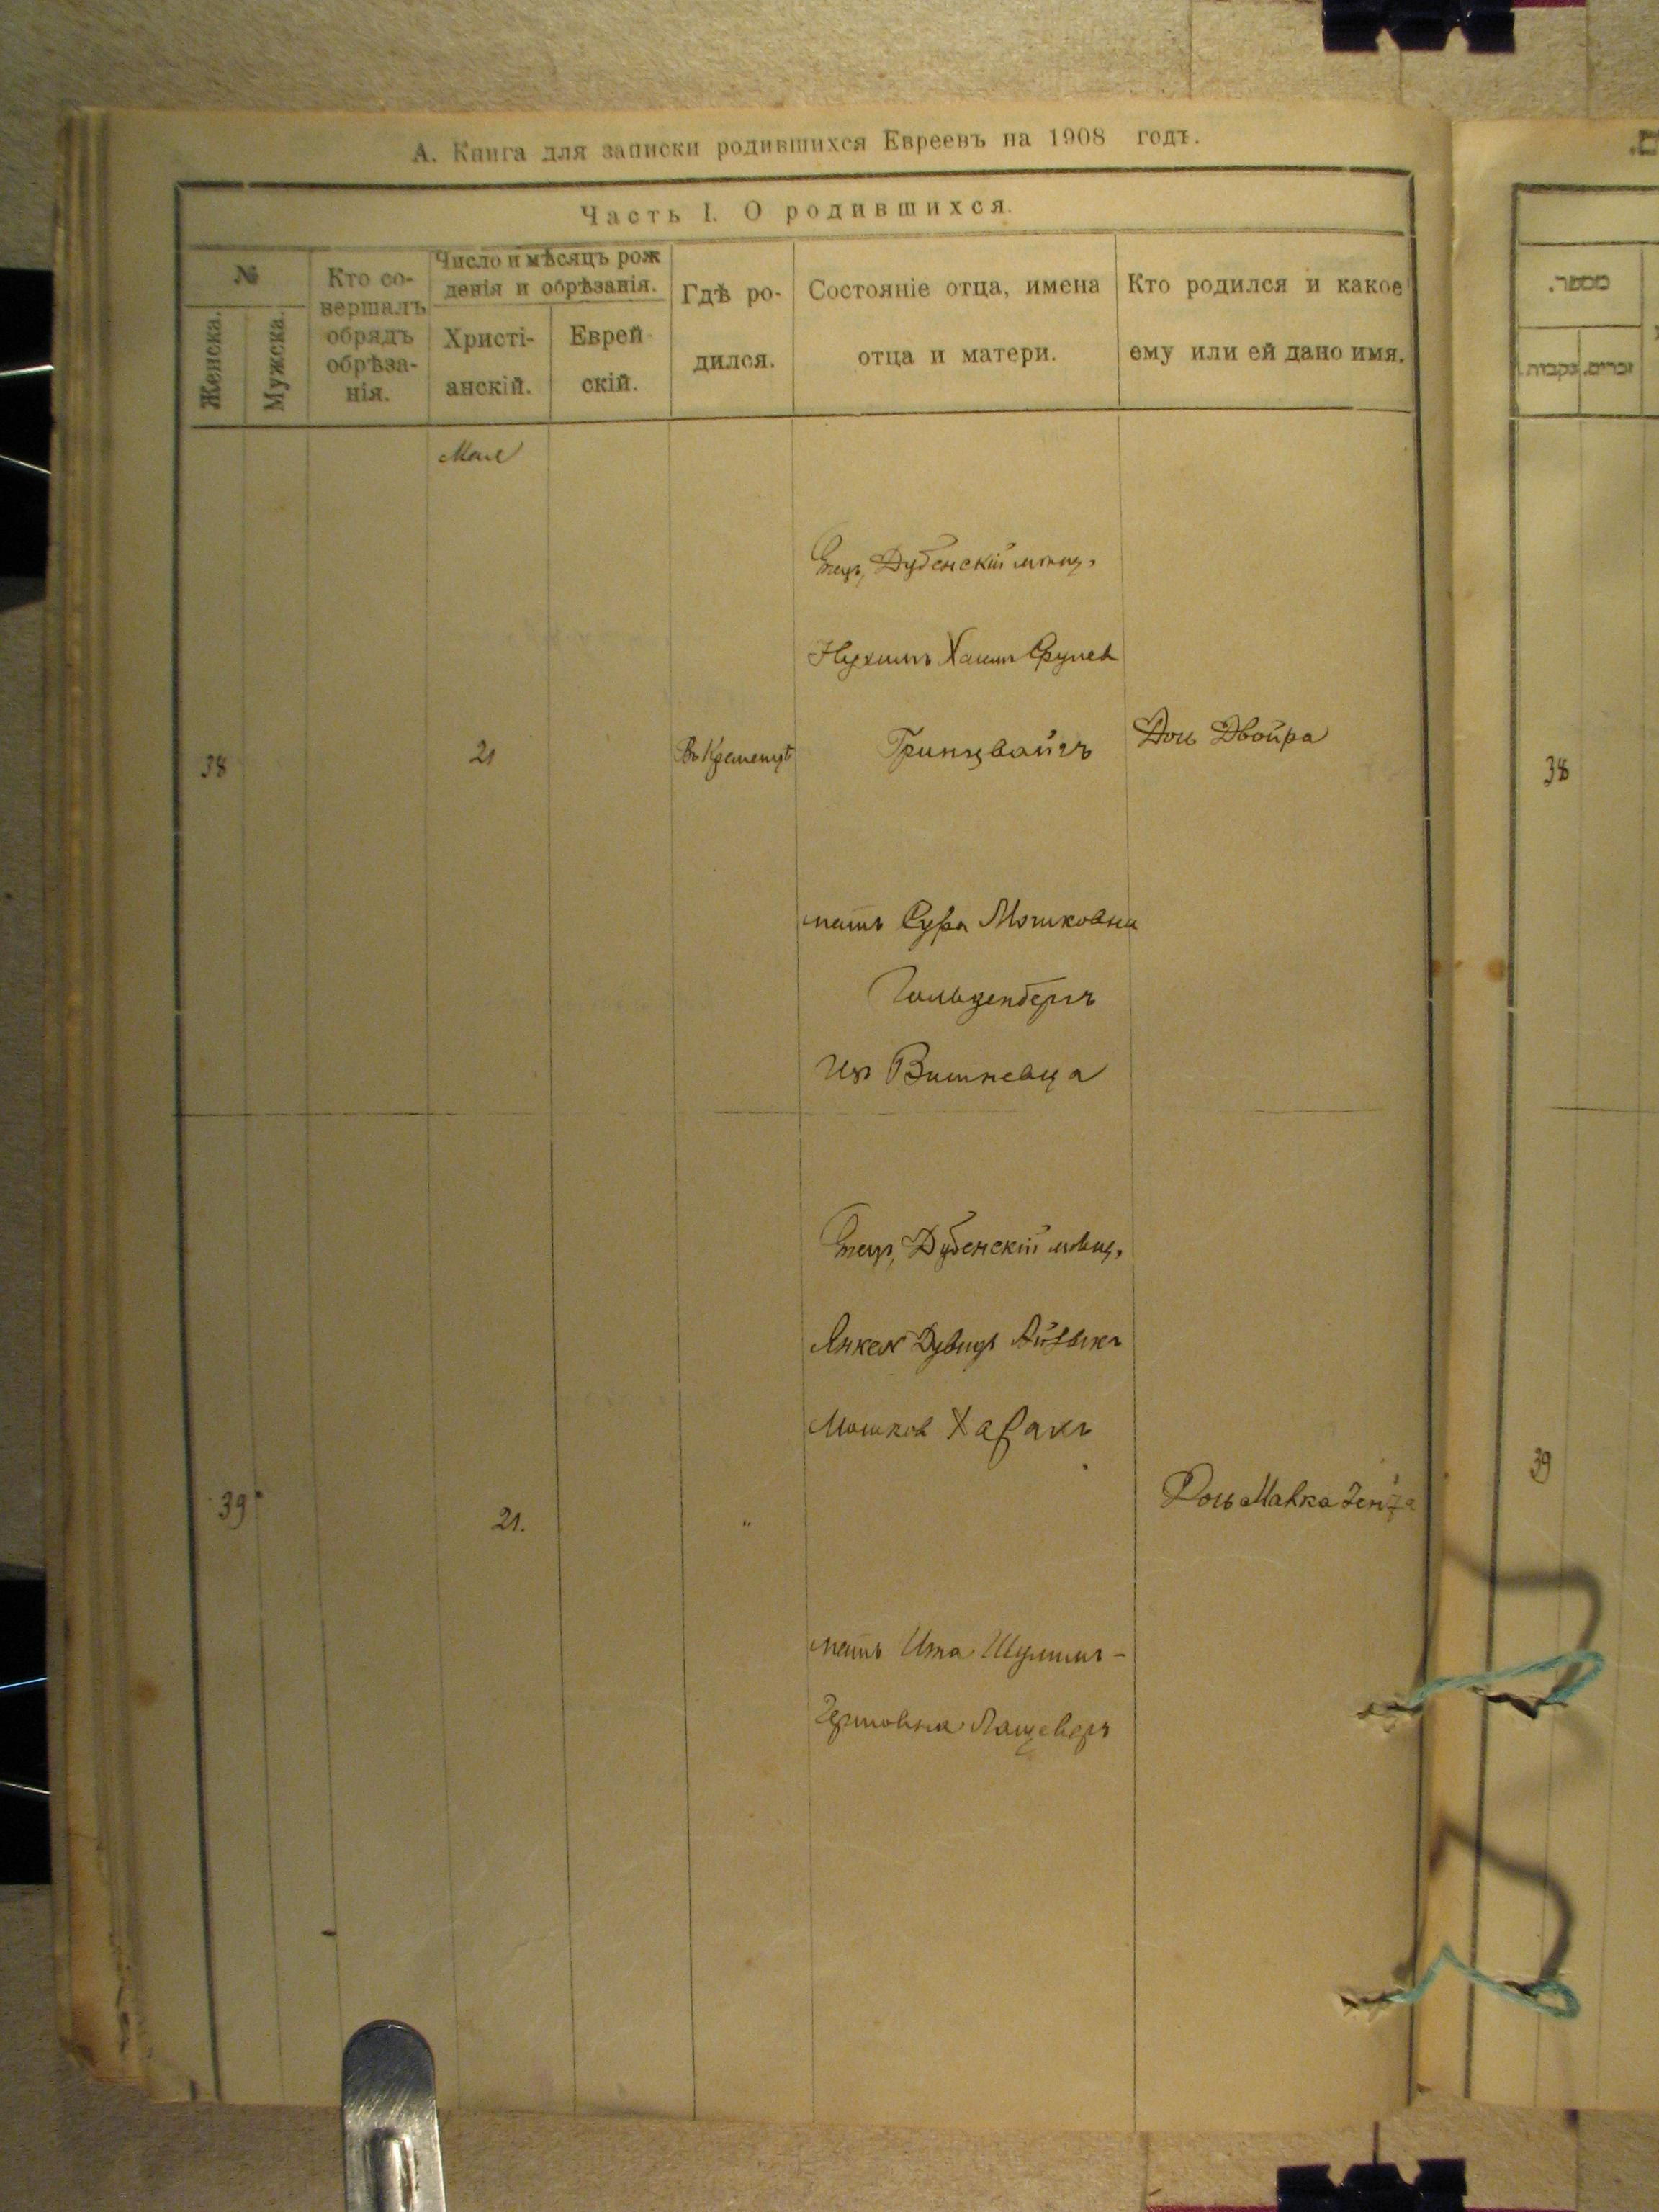 А. Книга для записки родившихся Евреевъ на 1908 годъ.
Часть I. О родившихся.
№
Женска.
Мужска.
Кто со-
вершалъ
обрядъ
обрѣза-
нія.
Число и мѣсяцъ рож
денія и обрѣзанія.
Христі-
анскій.
Еврей
скій.
Гдѣ ро-
дился.
Состояніе отца, имена
отца и матери.
Кто родился и какое
ему или ей дано имя.
Мая
38
21
Въ Кременцѣ
Отецъ, Дубенскій мѣщ.
Нухимъ Хаим Срулев
Гринцвайгъ
мать Сура Мошковна
Гольденбергъ
Из Вишневца
Дочь Двойра
39
21.
"
Отецъ, Дубенскій мѣщ.
Янкел Дувидъ Айзыкъ
Мошков Харакъ
мать Ита Шулимъ-
Гершовна
Дочь Малка
מספר.
זכרים.
נקבות.
38
39